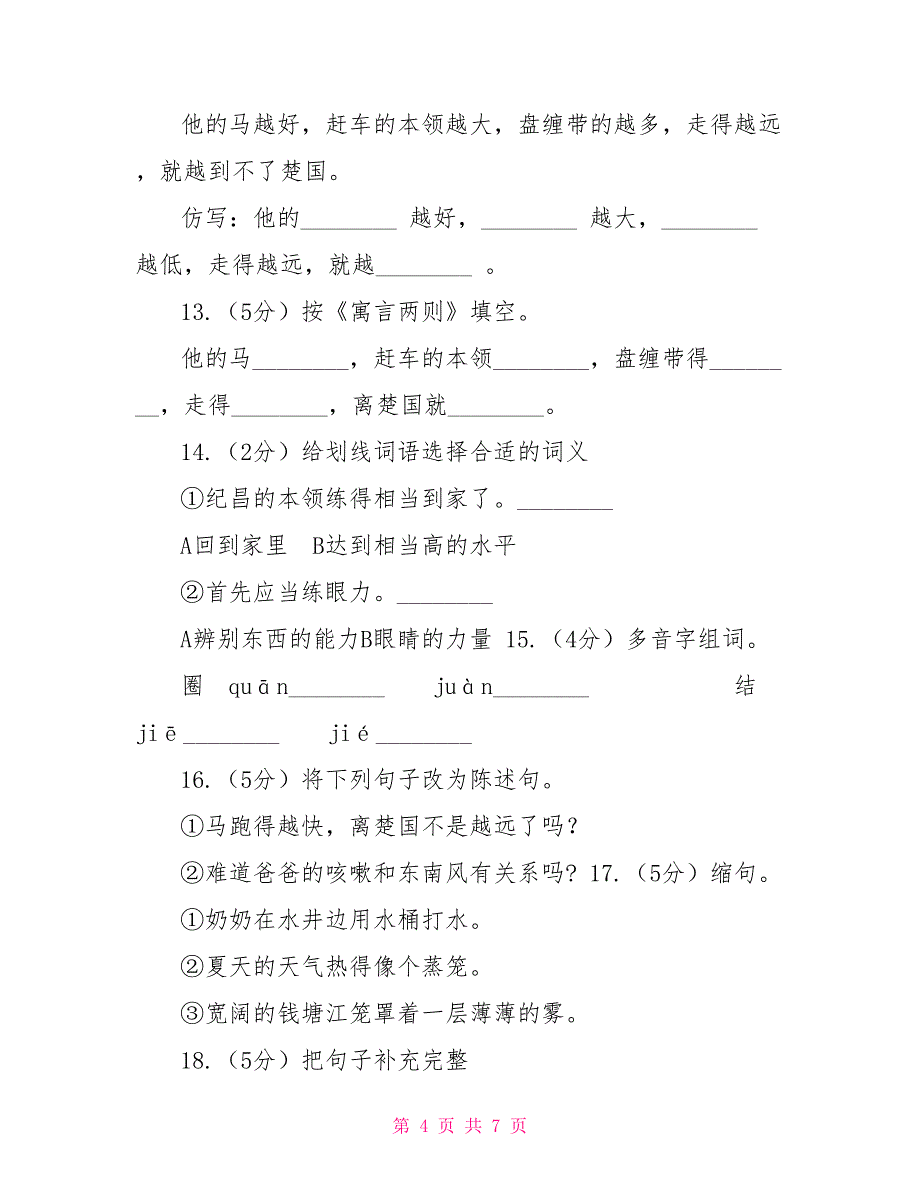 他的马越好，赶车的本领越大，盘缠带的越多，走得越远
，就越到不了楚国。
仿写：他的________ 越好，________ 越大，________
越低，走得越远，就越________ 。
13.（5分）按《寓言两则》填空。
他的马________，赶车的本领________，盘缠带得______
__，走得________，离楚国就________。
14.（2分）给划线词语选择合适的词义
①纪昌的本领练得相当到家了。________
A回到家里　B达到相当高的水平
②首先应当练眼力。________
A辨别东西的能力B眼睛的力量 15.（4分）多音字组词。
圈　quān________　　juàn________　　　　　　结
jiē________　　jié________
16.（5分）将下列句子改为陈述句。
①马跑得越快，离楚国不是越远了吗？
②难道爸爸的咳嗽和东南风有关系吗? 17.（5分）缩句。
①奶奶在水井边用水桶打水。
②夏天的天气热得像个蒸笼。
③宽阔的钱塘江笼罩着一层薄薄的雾。
18.（5分）把句子补充完整
第 4 页 共 7 页